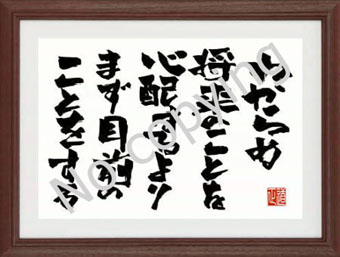 分からぬ
将来のことを
心配するより
まず目前の
ことをする
No copying